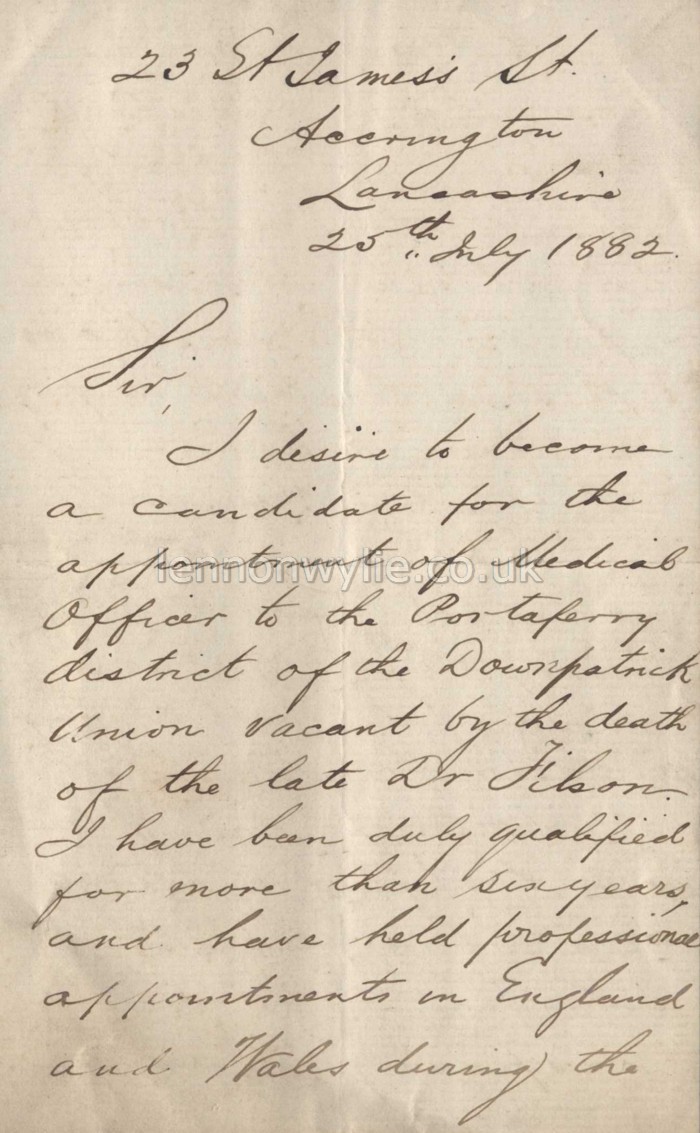 23 St James's St.
Accrington
Lancashire
25th July 1882.
Sir,
I desire to become
a candidate for the
appointment of Medical
lennonwylie.co.uk
Officer to the Portaferry
district of the Downpatrick
Union vacant by the death
of the late Dr Filson.
I have been duly qualified
for more than six years,
and have held professional
appointments in England
and Wales during the